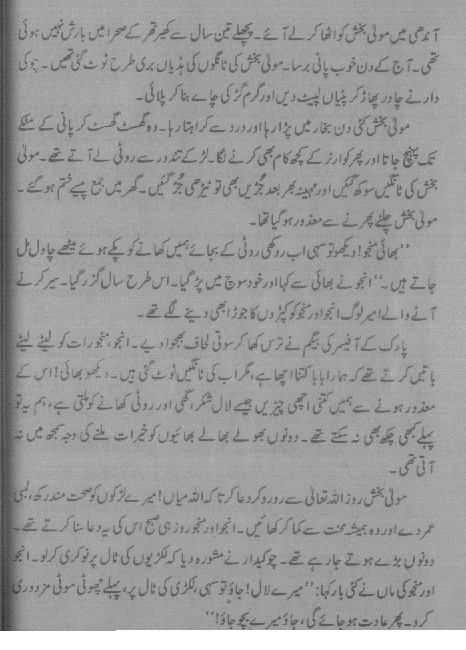 آندھی میں مولیٰ بخش کو اٹھا کر لے آئے۔ پچھلے تین سال سے کھیرتھر کے صحرا میں بارش نہیں ہوئی
تھی۔ آج کے دن خوب پانی برسا۔ مولیٰ بخش کی ٹانگوں کی ہڈیاں بری طرح ٹوٹ گئی تھیں۔ چوکی
دار نے چادر پھاڑ کر پٹیاں لپیٹ دیں اور گرم گڑ کی چاے بنا کر پلائی۔
مولیٰ بخش کئی دن بخار میں پڑا رہا اور درد سے کراہتا رہا۔ وہ گھسٹ گھسٹ کر پانی کے مٹکے
تک پہنچ جاتا اور پھر کوارٹر کے کچھ کام بھی کرنے لگا۔ لڑکے تندور سے روٹی لے آتے تھے۔ مولیٰ
بخش کی ٹانگیں سوکھ گئیں اور مہینہ بھر بعد جڑیں بھی تو ٹیڑھی جُڑ گئیں۔ گھر میں جمع پیسے ختم ہو گئے۔
مولیٰ بخش چلنے پھرنے سے معذور ہو گیا تھا۔
’’بھائی منجو! دیکھو تو سہی اب روکھی روٹی کے بجائے ہمیں کھانے کو پکے ہوئے میٹھے چاول مل
جاتے ہیں۔‘‘ انجو نے بھائی سے کہا اور خود سوچ میں پڑ گیا۔ اس طرح سال گزر گیا۔ سیر کرنے
آنے والے امیر لوگ انجو اور منجو کو کپڑوں کا جوڑا بھی دینے لگے تھے۔
پارک کے آفیسر کی بیگم نے ترس کھا کر سوتی لحاف بھجوا دیے۔ انجو، منجو رات کو لیٹے لیٹے
باتیں کرتے تھے کہ ہمارا بابا کتنا اچھا ہے، مگر اب کی ٹانگیں ٹوٹ گئی ہیں۔ دیکھو بھائی! اس کے
معذور ہونے سے ہمیں کتنی اچھی چیزیں جیسے لال شکر، گھی اور روٹی کھانے کو ملتی ہے، ہم یہ تو
پہلے کبھی چکھ بھی نہ سکتے تھے۔ دونوں بھولے بھالے بھائیوں کو خیرات ملنے کی وجہ سمجھ میں نہ
آتی تھی۔
مولیٰ بخش روز اللہ تعالیٰ سے رو رو کر دعا کرتا کہ اللہ میاں! میرے لڑکوں کو صحت مند رکھ، لمبی
عمر دے اور وہ ہمیشہ محنت سے کما کر کھائیں۔ انجو اور منجو روز ہی صبح اس کی یہ دعا سنا کرتے تھے۔
دونوں بڑے ہوتے جا رہے تھے۔ چوکیدار نے مشورہ دیا کہ لکڑیوں کی ٹال پر نوکری کر لو۔ انجو
اور منجو کی ماں نے کئی بار کہا: ’’میرے لال! جاؤ تو سہی، لکڑی کی ٹال پر، پہلے چھوٹی موٹی مزدوری
کرو۔ پھر عادت ہو جائے گی، جاؤ میرے بچو جاؤ!‘‘